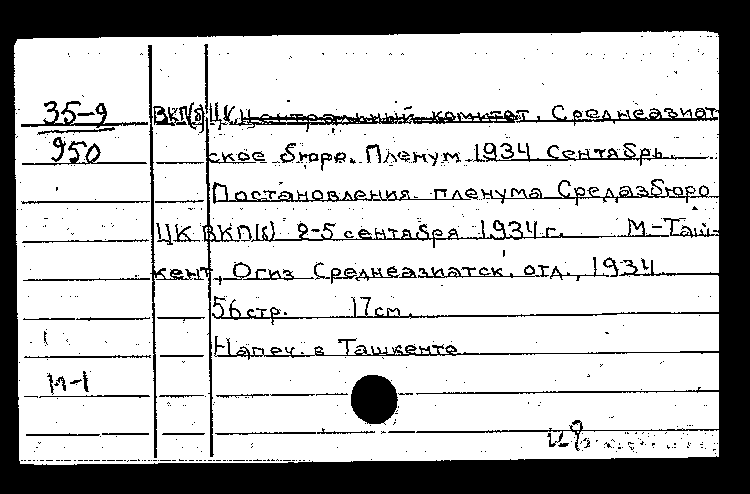 35-9 ВКП(б) ЦК Центральный комитет. Среднеазиат
950 ское бюро. Пленум 1934 Сентябрь.
Постановления пленума Средазбюро
ЦК ВКП(б) 2-5 сентября 1934 г. М.-Таш-
кент, Огиз Среднеазиатск. отд., 1934
56 стр. 17 см.
Напеч. в Ташкенте.
И-1